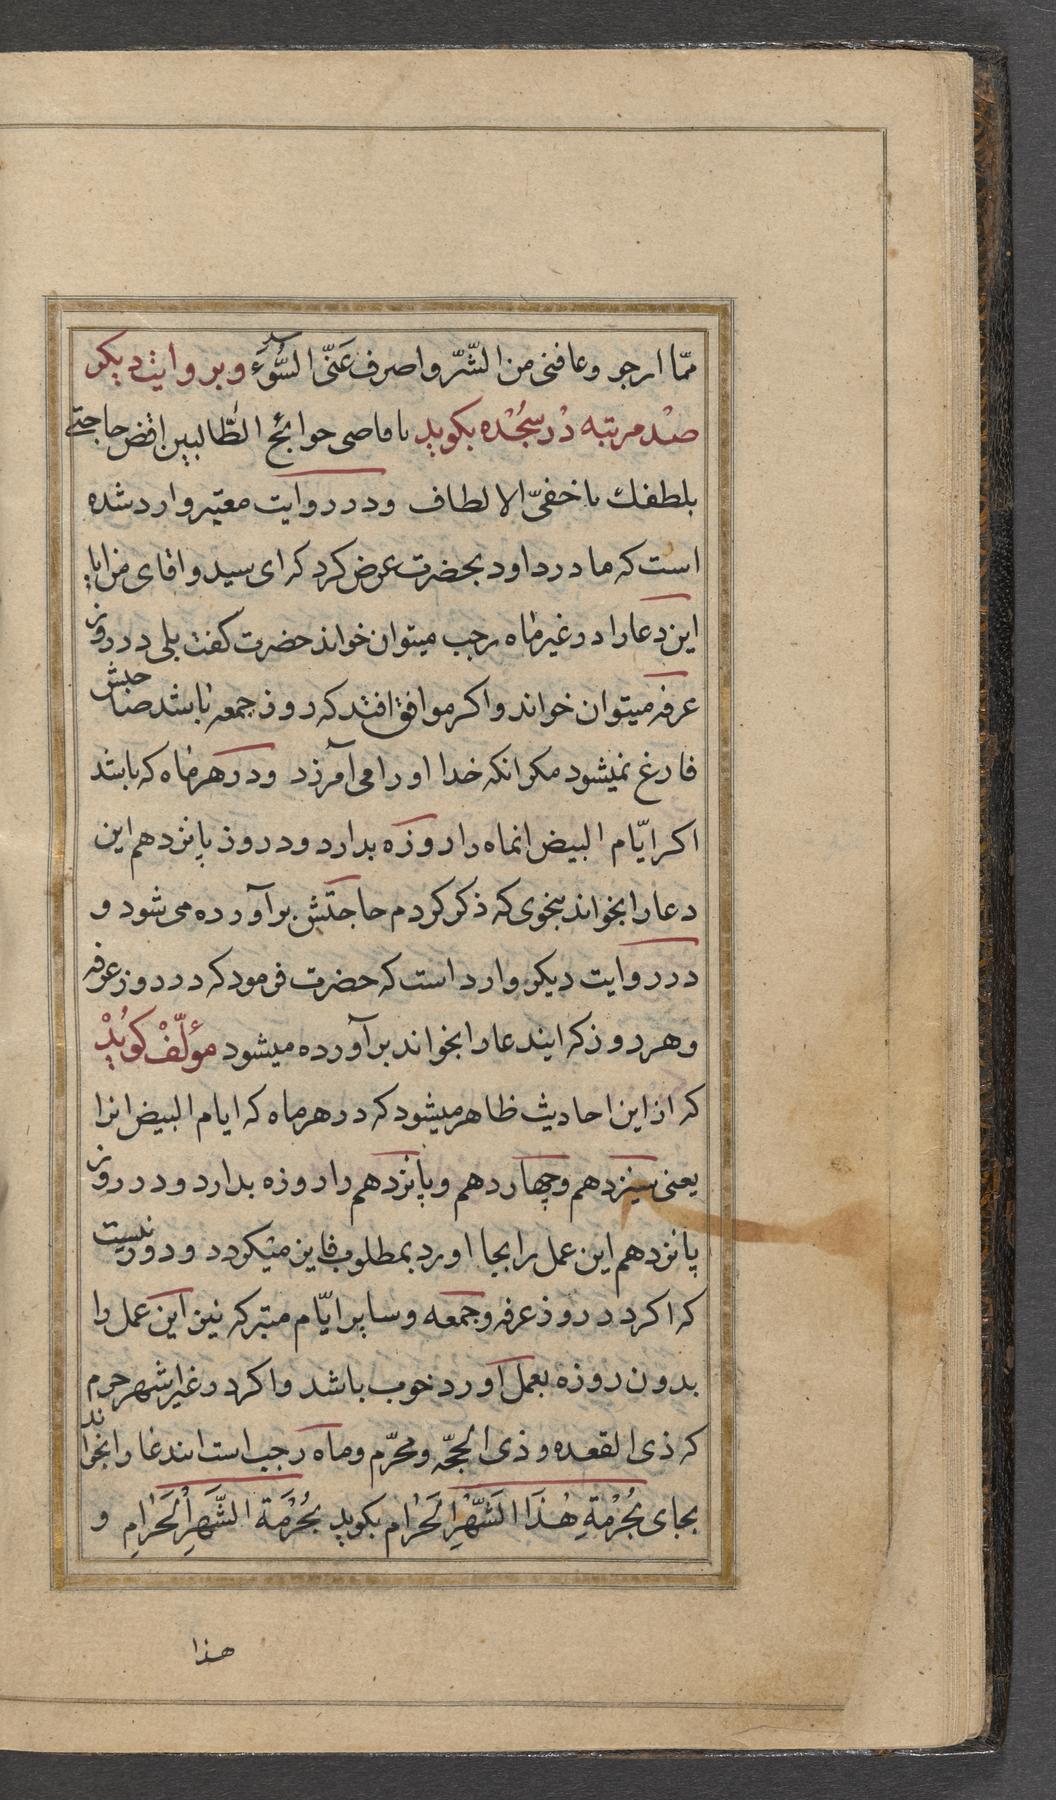 ممّا ارجو وعافنی من الشّرّ واصرف عَنّی السُّوَء و بروایت دیکر
صد مرتبه در سجُده بکوید یا قاضی حوائج الطّالبین اقض حاجتے
بلطفك یا خفیّ الالطاف ودر روایت معتبر وارد شده
است که مادر داود بحضرت عرض کرد که ای سید و اقای من ایا
این دعا را در غیر ماه رجب میتوان خواند حضرت کفت بلی در روز
عرفه میتوان خواند و اکر موافق افتد که روز جمعه باشد صاحبش
فارغ نمیشود مکر انکه خدا او را می آمرزد ودر هر ماه که باشد
اکر ایّام البیض انماه را روزه بدارد ودر روز پانزدهم این
دعا را بخواند بنحوی که ذکر کردم حاجتش بر آورده می شود و
در روایت دیکر وارد است که حضرت فرمود که در روز عرفه
وهر روز که ایندعا را بخواند بر آورده میشود مؤلّفْ کویُدْ
که از این احادیث ظاهر میشود که در هر ماه که ایام البیض انرا
یعنی سیزدهم وچهاردهم وپانزدهم را روزه بدارد ودر روز
پانزدهم این عمل را بجا اورد بمطلوب فایز میکردد ودور نیست
که اکر در روز عرفه وجمعه وسایر ایّام متبرکه نیز این عمل را
بدون روزه بعمل اورد خوب باشد و اکر در غیر اشهر حرم
که ذی القعده و ذی الحجّه ومحرّم وماه رجب است ایندعا را بخواند
بجای بحُرْمَةِ هٰذَا الشَّهْرِ الحَرٰام بکوید بحُرْمَة الشَّهرِ الحَرٰامِ و
هذا